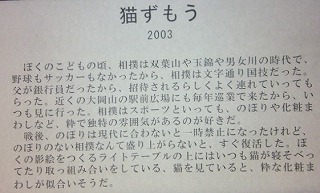 猫ずもう
2003
ぼくのこどもの頃、相撲は双葉山や玉錦や男女川の時代で、
野球もサッカーもなかったから、相撲は文字通り国技だった。
父が銀行員だったから、招待されるらしくよく連れていっても
らった。近くの大岡山の駅前広場にも毎年巡業で来たから、い
つも見に行った。相撲はスポーツといっても、のぼりや化粧ま
わしなど、粋で独特の雰囲気があるのが好きだ。
戦後、のぼりは現代に合わないと一時禁止になったけれど、
のぼりのない相撲なんて盛り上がらないと、すぐ復活した。ぼ
くの影絵をつくるライトテーブルの上にはいつも猫が寝そべっ
てたり取っ組み合いをしている、猫を見ていると、粋な化粧ま
わしが似合いそうだ。